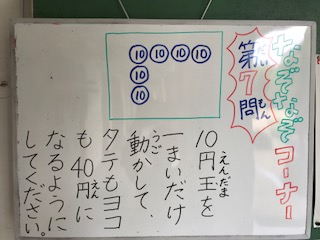 なぞなぞコーナー
第7問
もん
10 10 10 10
10
10
10円玉を
えんだま
一まいだけ
動かして、
うご
タテもヨコ
も40円に
えん
なるように
してください。